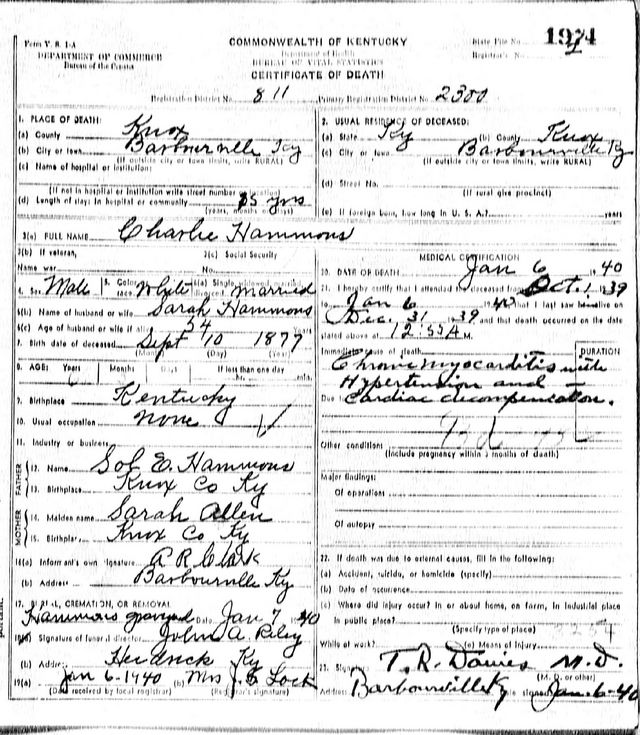 Form V. S. 1-A
DEPARTMENT OF COMMERCE
Bureau of the Census
COMMONWEALTH OF KENTUCKY
Department of Health
BUREAU OF VITAL STATISTICS
CERTIFICATE OF DEATH
State File No. 1924
Registrar's No.
Registration District No. 811 Primary Registration District No. 2300
1. PLACE OF DEATH:
(a) County Knox
(b) City or town Barbourville Ky
(If outside city or town limits, write RURAL)
(c) Name of hospital or institution:
(If not in hospital or institution write street number or location)
(d) Length of stay: In hospital or community 35 yrs
(years, months or days)
2. USUAL RESIDENCE OF DECEASED:
(a) State Ky (b) County Knox
(c) City or town Barbourville Ky
(If outside city or town limits, write RURAL)
(d) Street No.
(If rural give precinct)
(e) If foreign born, how long in U. S. A.? years
3(a) FULL NAME Charlie Hammons
3(b) If veteran, 3(c) Social Security
Name war No.
4. Sex Male 5. Color or race White 6(a) Single, widowed, married, divorced married
6(b) Name of husband or wife Sarah Hammons
6(c) Age of husband or wife if alive 54 Years
7. Birth date of deceased Sept 10 1877
(Month) (Day) (Year)
8. AGE: Years Months Days If less than one day
hr. min.
9. Birthplace Kentucky
10. Usual occupation none
11. Industry or business
FATHER
12. Name Sol E. Hammons
13. Birthplace Knox Co Ky
MOTHER
14. Maiden name Sarah Allen
15. Birthplace Knox Co Ky
16(a) Informant's own signature A R Clark
(b) Address Barbourville Ky
17. BURIAL, CREMATION, OR REMOVAL
Hammons graveyard Date Jan 7 1940
18(a) Signature of funeral director John A. Riley
(b) Address Heidrick Ky
19(a) Jan 6-1940 (b) Mrs J. E Lock
(Date received by local registrar) (Registrar's signature)
MEDICAL CERTIFICATION
20. DATE OF DEATH Jan 6 1940
21. I hereby certify that I attended the deceased from Oct. 1 1939
to Jan 6 1940 that I last saw him alive on
Dec. 31 1939 and that death occurred on the date
stated above at 12:55 A M.
Immediate cause of death DURATION
Chronic myocarditis with
Hypertension and
Due to Cardiac decompensation.
Other conditions
(Include pregnancy within 3 months of death)
Major findings:
Of operations
Of autopsy
22. If death was due to external causes, fill in the following:
(a) Accident, suicide, or homicide (specify)
(b) Date of occurrence
(c) Where did injury occur? In or about home, on farm, in industrial place
in public place?
(Specify type of place)
While at work? (e) Means of Injury
23. Signature T. R. Davies M.D.
(M. D. or other)
Address Barbourville Ky Date signed Jan-6-40